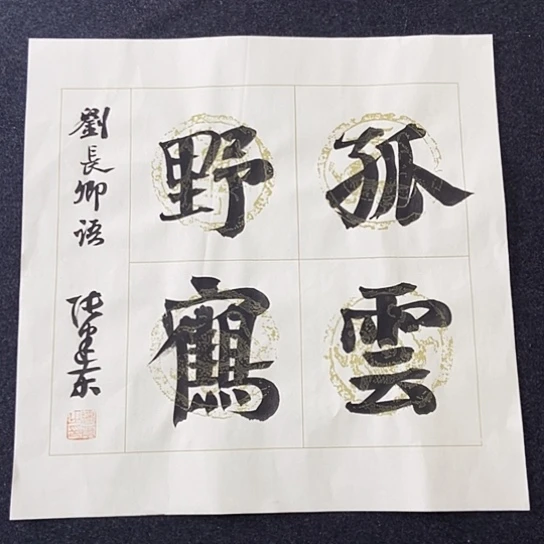 孤雲
野鶴
劉長卿语